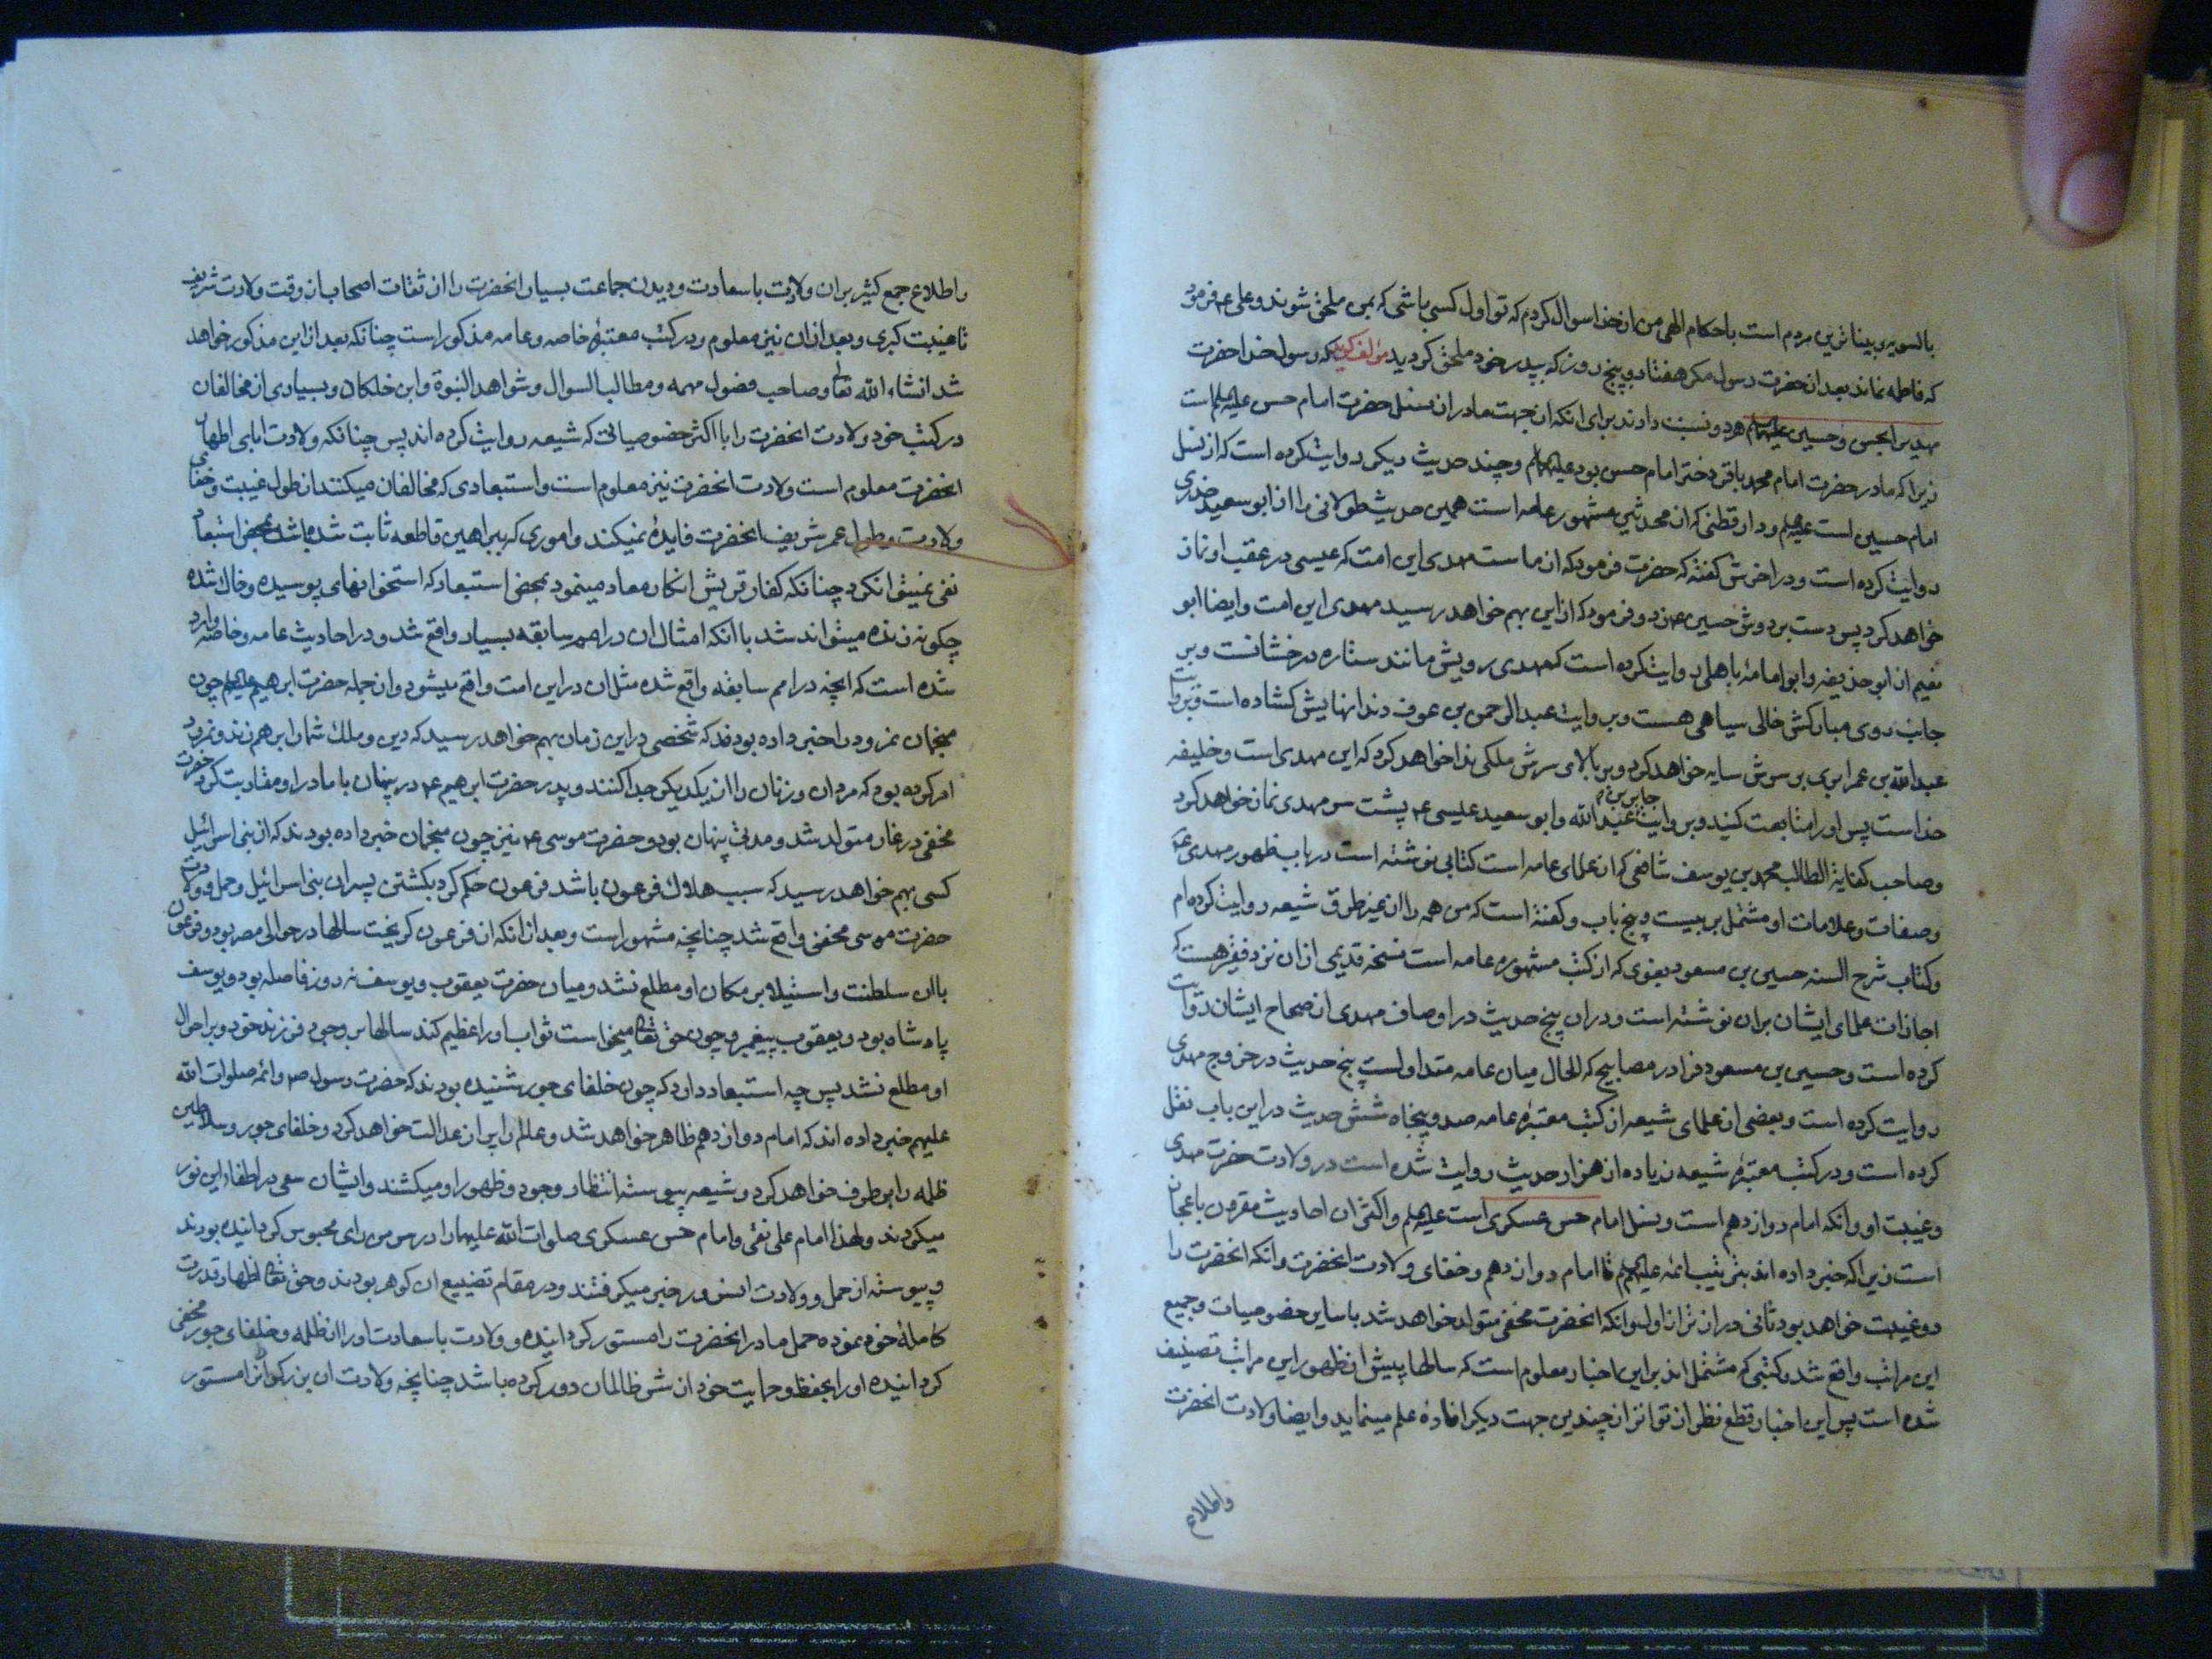 بالسویه و بیناترین مردم است باحکام الهی من از خدا سوال کردم که تو اول کسی باشی که بمن ملحق شوند و علی ع فرمود
که فاطمه نماند بعد از حضرت رسول مکر هفتاد و پنج روز که بپدر خود ملحق کردید مولف کوید که رسول خدا حضرت
مهدی را بحسن و حسین علیهما السلم هر دو نسبت دادند برای انکه از جهت مادر از نسل حضرت امام حسن علیه السلم است
زیرا که مادر حضرت امام محمد باقر دختر امام حسن بود علیهم السلم و چند حدیث دیکر روایت کرده است که از نسل
امام حسین است علیه السلم و دار قطنی که از محدثین مشهور عامه است همین حدیث طولانی را از ابو سعید خدری
روایت کرده است و در اخرش کفته که حضرت فرمود که از ماست مهدی این امت که عیسی در عقب او نماز
خواهد کرد پس دست بر دوش حسین ع زد و فرمود که از این بهم خواهد رسید مهدی این امت و ایضا ابو
نعیم از ابو حذیفه و ابو امامۀ باهلی روایت کرده است که مهدی رویش مانند ستاره درخشانست و بر
جانب روی مبارکش خالی سیاهی هست و بروایت عبد الرحمن بن عوف دندانهایش کشاده است و بروایت
عبد الله بن عمر ابری بر سرش سایه خواهد کرد و بر بالای سرش ملکی ندا خواهد کرد که این مهدی است و خلیفه
خداست پس او را متابعت کنید و بروایت جابر بن عبد الله و ابو سعید عیسی ع پشت سر مهدی نماز خواهد کرد
و صاحب کفایة الطالب محمد بن یوسف شافعی که از علمای عامه است کتابی نوشته است در باب ظهور مهدی ع
و صفات و علامات او مشتمل بر بیست و پنج باب و کفته است که من همه را از غیر طرق شیعه روایت کرده ام
و کتاب شرح السنه حسین بن مسعود بغوی که از کتب مشهوره عامه است نسخه قدیمی از ان نزد فقیر هست که
اجازات علمای ایشان بران نوشته است و در ان پنج حدیث در اوصاف مهدی از صحاح ایشان روایت
کرده است و حسین بن مسعود فرا در مصابیح که الحال میان عامه متداولست پنج حدیث در خروج مهدی
روایت کرده است و بعضی از علمای شیعه از کتب معتبرۀ عامه صد و پنجاه شش حدیث در این باب نقل
کرده است و در کتب معتبرۀ شیعه زیاده از هزار حدیث روایت شده است در ولادت حضرت مهدی
و غیبت او و انکه امام دوازدهم است و نسل امام حسن عسکری است علیه السلم و اکثر ان احادیث مقرون باعجاز
است زیرا که خبر داده اند بترتیب ائمه علیهم السلم تا امام دوازدهم و خفای ولادت انحضرت و انکه انحضرت را
دو غیبت خواهد بود ثانی درازتر از اول و انکه انحضرت مخفی متولد خواهد شد با سایر خصوصیات و جمیع
این مراتب واقع شد و کتبی که مشتمل اند بر این اخبار معلوم است که سالها پیش از ظهور این مراتب تصنیف
شده است پس این اخبار قطع نظر از تواتر از چندین جهت دیکر افادۀ علم مینماید و ایضا ولادت انحضرت
و اطلاع
و اطلاع جمع کثیر بر ان ولادت باسعادت و دیدن جماعت بسیار انحضرت را از ثقات اصحاب از وقت ولادت شریف
تا غیبت کبری و بعد از ان نیز معلوم و در کتب معتبرۀ خاصه و عامه مذکور است چنانکه بعد از این مذکور خواهد
شد انشاء الله تعالی و صاحب فصول مهمه و مطالب السوال و شواهد النبوة و ابن خلکان و بسیاری از مخالفان
در کتب خود ولادت انحضرت را با اکثر خصوصیاتی که شیعه روایت کرده اند پس چنانکه ولادت ابای اطهار
انحضرت معلوم است ولادت انحضرت نیز معلوم است و استبعادی که مخالفان میکنند از طول غیبت و خفای
ولادت و طول عمر شریف انحضرت فایدۀ نمیکند و اموری که ببراهین قاطعه ثابت شده باشد بمحض استبعاد
نفی نمیتوان کرد چنانکه کفار قریش انکار معاد مینمودند بمحض استبعاد که استخوانهای پوسیده و خاک شده
چکونه زنده میتواند شد با انکه امثال ان در امم سابقه بسیار واقع شد و در احادیث عامه و خاصه وارد
شده است که انچه در امم سابقه واقع شده مثل ان در این امت واقع میشود و از جمله حضرت ابرهیم علیه السلم چون
منجمان نمرود را خبر داده بودند که شخصی در این زمان بهم خواهد رسید که دین و ملک شما را برهم زند و نمرود
امر کرده بود که مردان و زنان را از یکدیکر جدا کنند و پدر حضرت ابرهیم ع در پنهان با مادر او مقاربت کرد حضرت
مخفی در غار متولد شد و مدتی پنهان بود و حضرت موسی ع نیز چون منجمان خبر داده بودند که از بنی اسرائیل
کسی بهم خواهد رسید که سبب هلاک فرعون باشد فرعون حکم کرد بکشتن پسران بنی اسرائیل و حمل و ولادت
حضرت موسی مخفی واقع شد چنانچه مشهور است و بعد از انکه از فرعون کریخت سالها در حوالی مصر بود و فرعون
با ان سلطنت و استیلا بر مکان او مطلع نشد و میان حضرت یعقوب و یوسف نه روز فاصله بود و یوسف
پادشاه بود و یعقوب پیغمبر و چون حق تعالی میخواست ثواب او را عظیم کند سالها بر وجود فرزند خود و بر احوال
او مطلع نشد پس چه استبعاد دارد که چون خلفای جور شنیده بودند که حضرت رسول ص و ائمه صلوات الله
علیهم خبر داده اند که امام دوازدهم ظاهر خواهد شد و عالم را پر از عدالت خواهد کرد و خلفای جور و سلاطین
ظلمه را بر طرف خواهد کرد و شیعه پیوسته انتظار وجود و ظهور او میکشند و ایشان سعی در اطفاء این نور
میکردند و لهذا امام علی نقی و امام حسن عسکری صلوات الله علیهما را در سر من رای محبوس کردانیده بودند
و پیوسته از حمل و ولادت انسرور خبر میکرفتند و در مقام تضییع ان کوهر بودند و حق تعالی اظهار قدرت
کاملۀ خود نموده حمل مادر انحضرت را مستور کردانیده و ولادت باسعادت او را از ظلمه و خلفای جور مخفی
کردانیده او را بحفظ و حمایت خود از شر ظالمان دور کرده باشد چنانچه ولادت ان بزرکواران را مستور